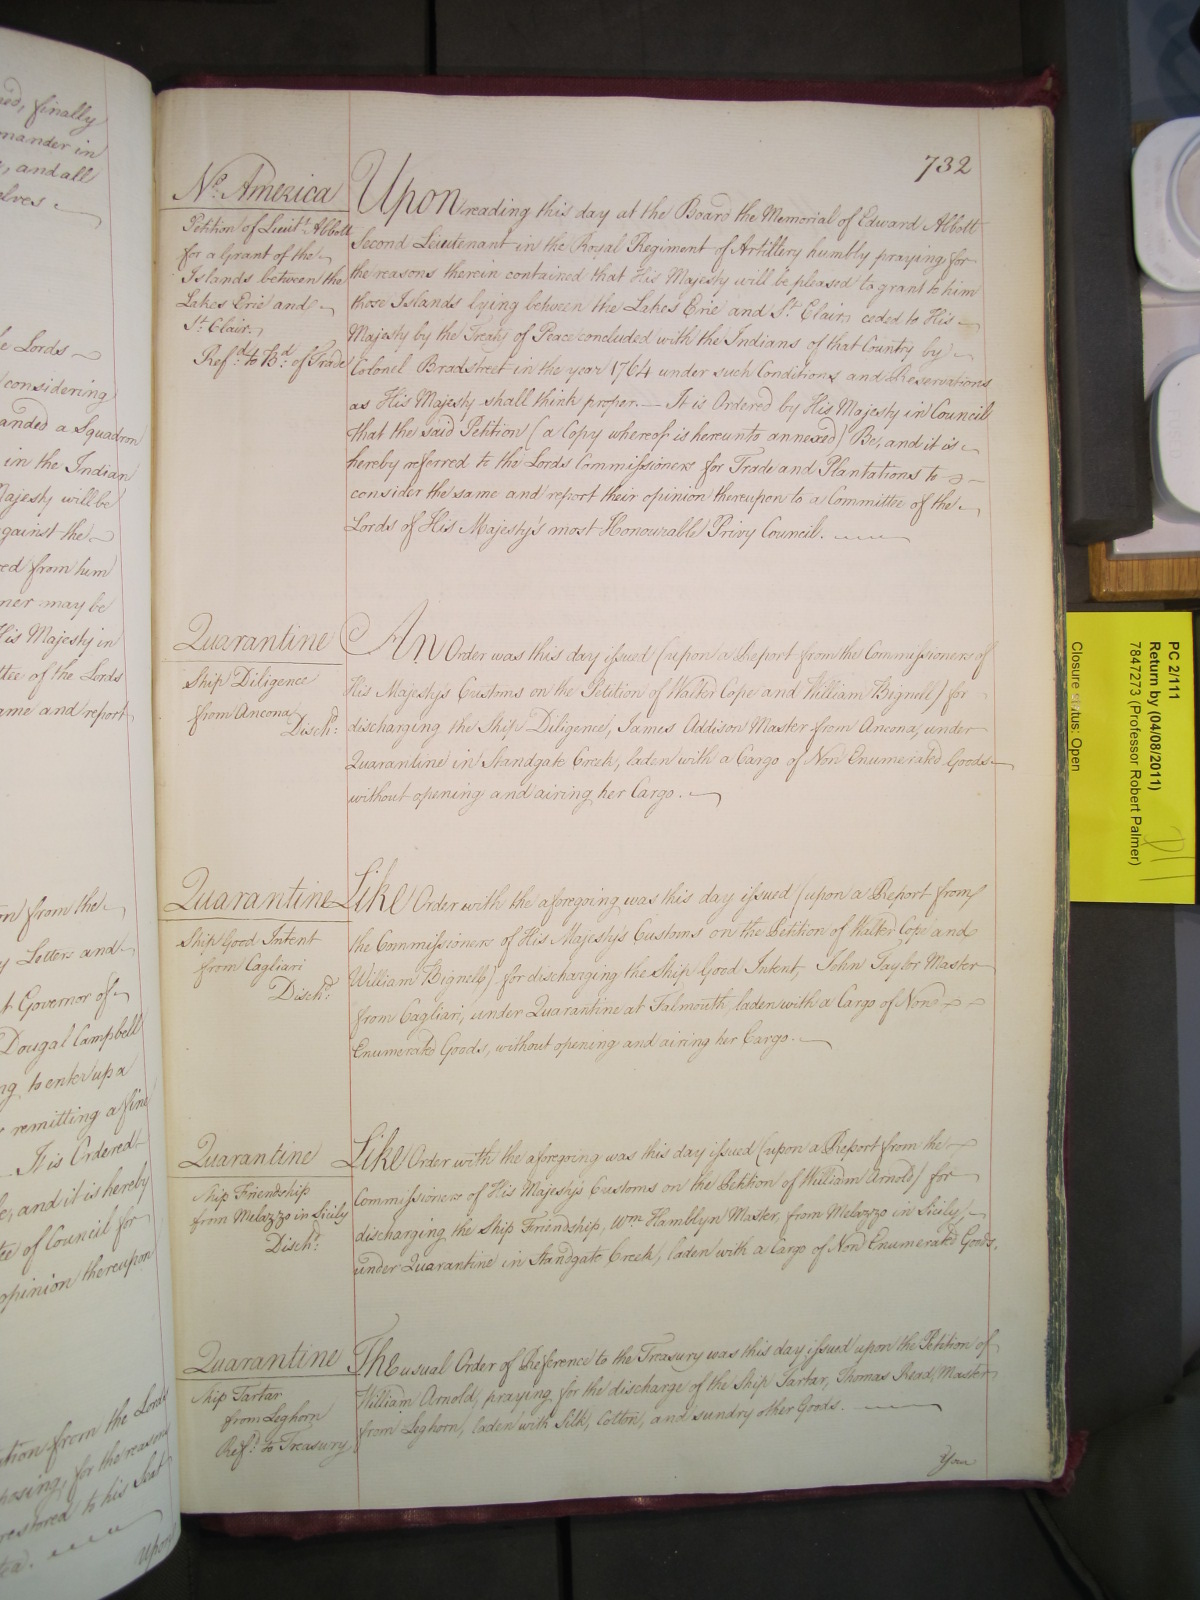 ed, finally
mander in
, and all
elves
e Lords
considering
anded a Squadron
in the Indian
Majesty will be
gainst the
ed from him
ner may be
His Majesty in
ttee of the Lords
ame and report
on from the
y Letters and
t Governor of
Dougal Campbell
ng to enter up a
r remitting a fine
It is Ordered
e, and it is hereby
tee of Council for
opinion thereupon
ition from the Lords
posing, for the reasons
restored to his Seat
Upon
732
No. America
Petition of Lieut.t Abbott
for a Grant of the
Islands between the
Lakes Erie and
St. Clair.
Ref.d to B.d of Trade
Upon reading this day at the Board the Memorial of Edward Abbott
Second Lieutenant in the Royal Regiment of Artillery humbly praying for
the reasons therein contained that His Majesty will be pleased to grant to him
those Islands lying between the Lakes Erie and St. Clair, ceded to His
Majesty by the Treaty of Peace concluded with the Indians of that Country by
Colonel Bradstreet in the year 1764 under such Conditions and Reservations
as His Majesty shall think proper. — It is Ordered by His Majesty in Council
that the said Petition (a Copy whereof is hereunto annexed) Be, and it is
hereby referred to the Lords Commissioners for Trade and Plantations to
consider the same and report their opinion thereupon to a Committee of the
Lords of His Majesty's most Honourable Privy Council.
Quarantine
Ship Diligence
from Ancona
Disch.d
An Order was this day issued (upon a Report from the Commissioners of
His Majesty's Customs on the Petition of Walter Cope and William Bignell) for
discharging the Ship Diligence, James Addison Master from Ancona, under
Quarantine in Standgate Creek, laden with a Cargo of Non Enumerated Goods
without opening and airing her Cargo.
Quarantine
Ship Good Intent
from Cagliari
Disch.d
Like Order with the aforegoing was this day issued (upon a Report from
the Commissioners of His Majesty's Customs on the Petition of Walter Cope and
William Bignell) for discharging the Ship Good Intent, John Taylor Master
from Cagliari, under Quarantine at Falmouth, laden with a Cargo of Non
Enumerated Goods, without opening and airing her Cargo.
Quarantine
Ship Friendship
from Melazzo in Sicily
Disch.d
Like Order with the aforegoing was this day issued (upon a Report from the
Commissioners of His Majesty's Customs on the Petition of William Arnold) for
discharging the Ship Friendship, Wm. Hamblyn Master, from Melazzo in Sicily,
under Quarantine in Standgate Creek, laden with a Cargo of Non Enumerated Goods.
Quarantine
Ship Tartar
from Leghorn
Ref.d to Treasury
The usual Order of Reference to the Treasury was this day issued upon the Petition of
William Arnold, praying for the discharge of the Ship Tartar, Thomas Read, Master
from Leghorn, laden with Silk, Cotton, and sundry other Goods.
PC 2/111
Return by (04/08/2011)
7847273 (Professor Robert Palmer)
Closure status: Open